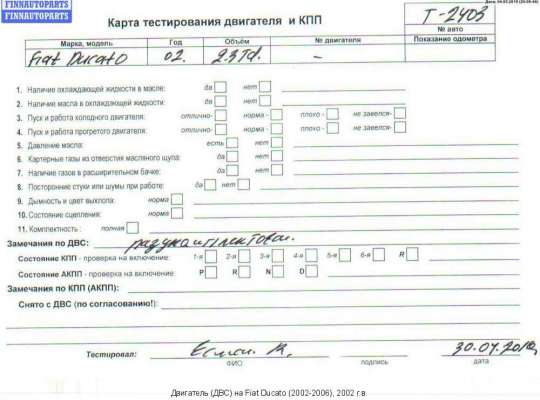 FINNAUTOPARTS
FINNAUTOPARTS
Карта тестирования двигателя и КПП
Т-2403
№ авто
Марка, модель Год Объём № двигателя Показание одометра
Fiat Ducato 02. 2.3Td. –
1. Наличие охлаждающей жидкости в масле: да нет
2. Наличие масла в охлаждающей жидкости: да нет
3. Пуск и работа холодного двигателя: отлично- норма - плохо - не завелся-
4. Пуск и работа прогретого двигателя: отлично- норма - плохо - не завелся-
5. Давление масла: есть нет
6. Картерные газы из отверстия масляного щупа: да нет
7. Наличие газов в расширительном бачке: да нет
8. Посторонние стуки или шумы при работе: да нет
9. Дымность и цвет выхлопа: норма
10. Состояние сцепления: норма
11. Комплектность : полная
Замечания по ДВС: разукомплектован.
Состояние КПП - проверка на включение: 1-я 2-я 3-я 4-я 5-я 6-я R
Состояние АКПП - проверка на включение: P R N D
Замечания по КПП (АКПП):
Снято с ДВС (по согласованию!):
Тестировал:
ФИО подпись дата
Двигатель (ДВС) на Fiat Ducato (2002-2006), 2002 г.в.